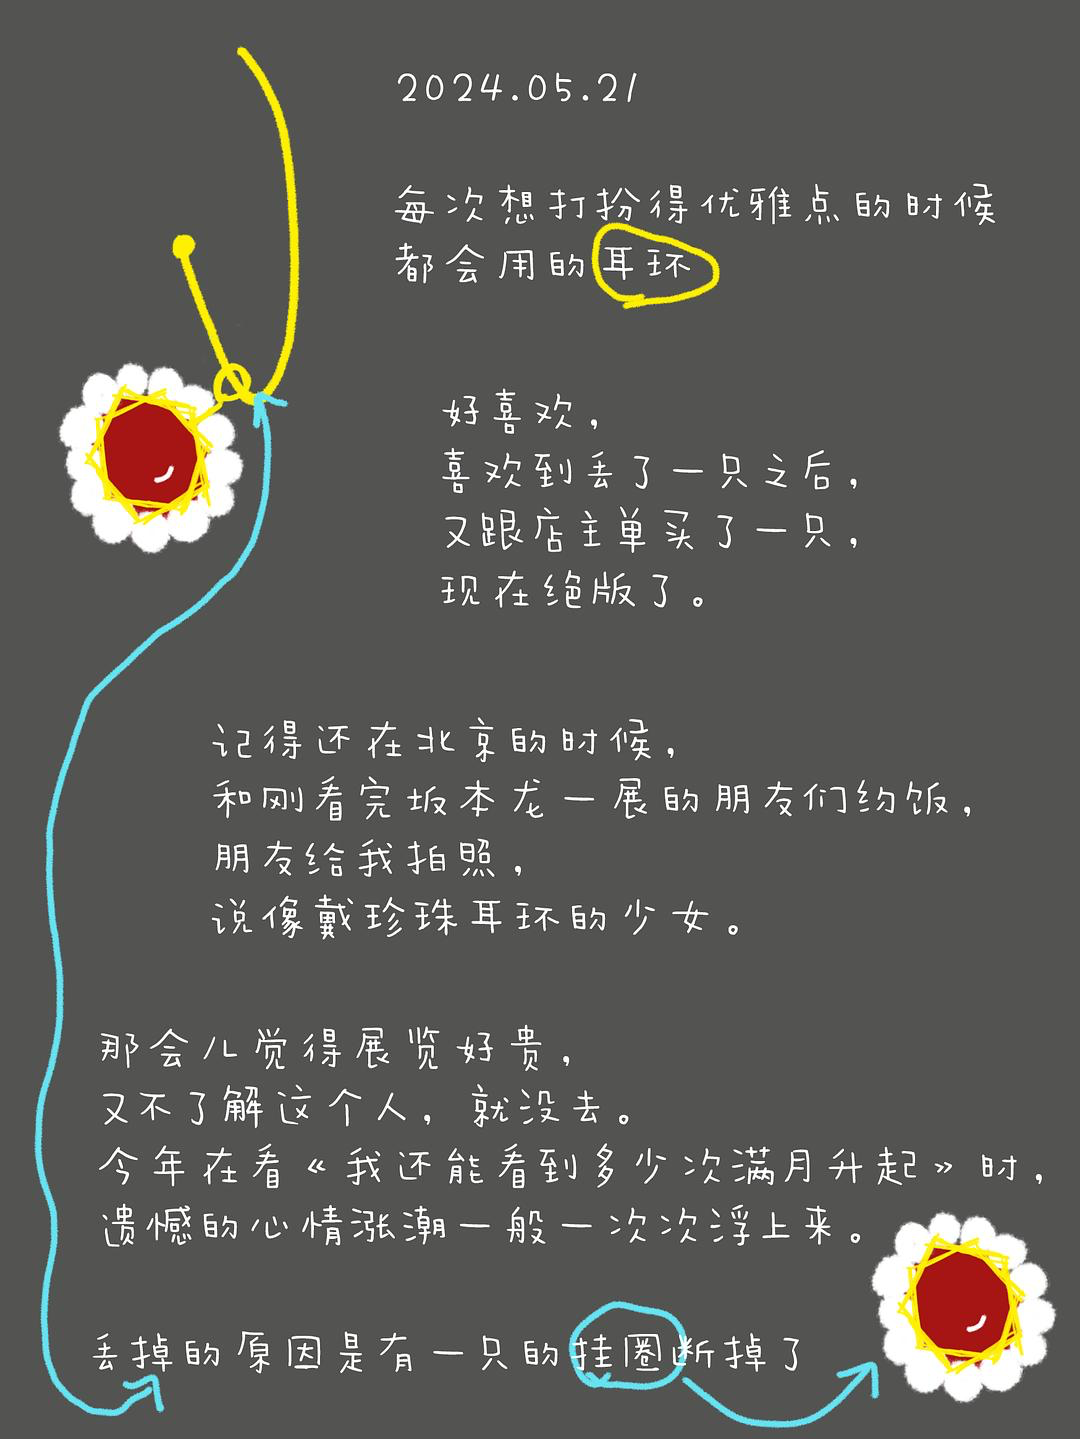 2024.05.21
每次想打扮得优雅点的时候
都会用的耳环
好喜欢，
喜欢到丢了一只之后，
又跟店主单买了一只，
现在绝版了。
记得还在北京的时候，
和刚看完坂本龙一展的朋友们约饭，
朋友给我拍照，
说像戴珍珠耳环的少女。
那会儿觉得展览好贵，
又不了解这个人，就没去。
今年在看《我还能看到多少次满月升起》时，
遗憾的心情涨潮一般一次次浮上来。
丢掉的原因是有一只的挂圈断掉了